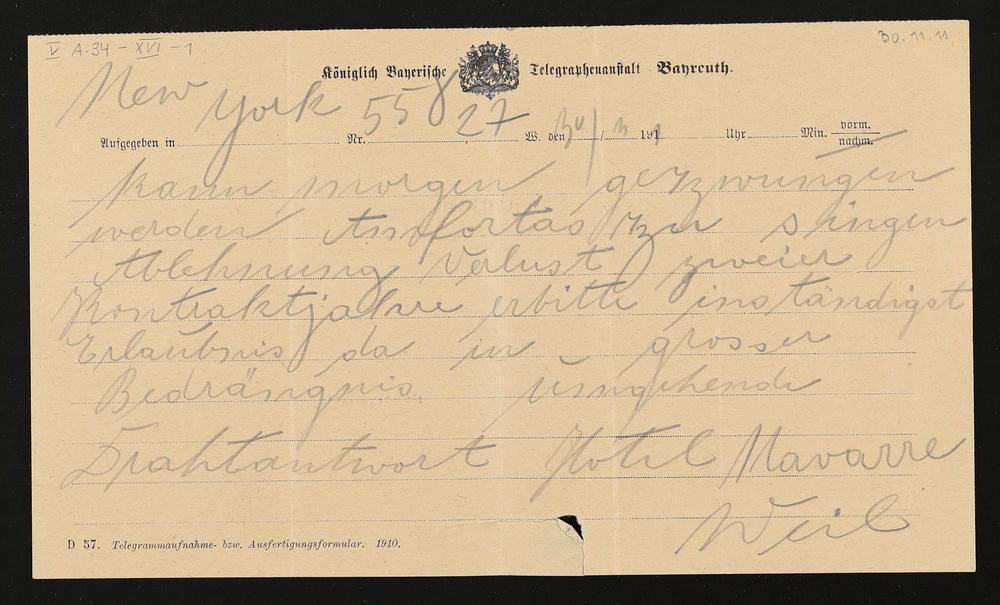 V A.34 - XVI - 1
30.11.11.
Königlich Bayerische Telegraphenanstalt Bayreuth.
New York 558 27
Aufgegeben in Nr. , W. den 30/ 191 Uhr Min. vorm. nachm.
kann morgen gezwungen
werden Amfortas zu singen
Ablehnung Verlust zweier
Kontraktjahre erbitte inständigst
Erlaubnis da in grosser
Bedrängnis. Umgehende
Drahtantwort Hotel Navarre
Weil
D 57. Telegrammaufnahme- bzw. Ausfertigungsformular. 1910.